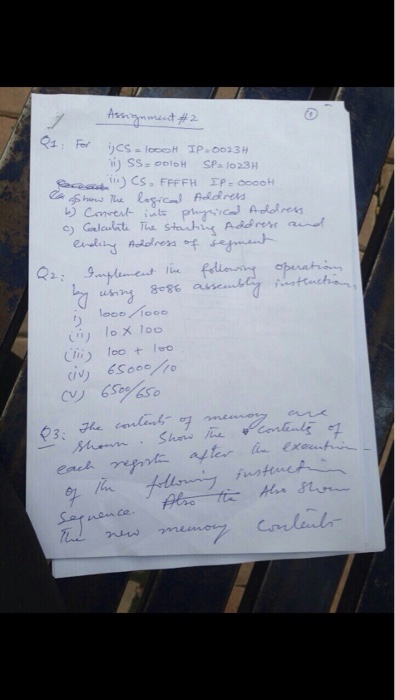 Assignment #2
1
Q1: For i) CS = 1000H IP=0023H
ii) SS= 0010H SP=1023H
iii) CS= FFFFH IP= 0000H
a) Show The Logical Address
b) Convert into physical Address
c) Calculate The Starting Address and
ending Address of segment
Q2: Implement the following operations
by using 8086 assembly instructions
i) 1000/1000
(ii) 10 X 100
(iii) 100 + 100
(iv) 65000/10
(V) 6500/650
Q3: The contents of memory are
shown. Show The contents of
each register after the execution
of The following instruction
sequence. Also the Also show
The new memory contents